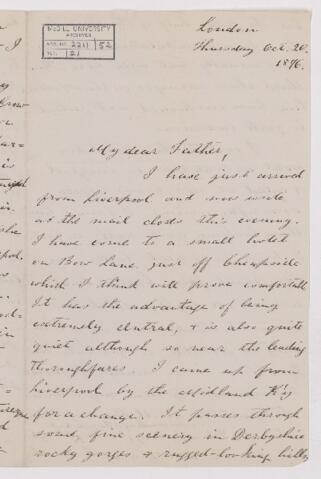 McGILL UNIVERSITY
ARCHIVES
ACC. NO. 2211 / 52
REF. 121
London
Thursday Oct. 20.
1896.
My dear Father,
I have just arrived
from Liverpool and now write
as the mail closes this evening.
I have come to a small hotel
on Bow Lane just off Cheapside
which I think will prove comfortable
It has the advantage of being
extremely central, & is also quite
quiet although so near the leading
thoroughfares. I came up from
Liverpool by the Midland R'y
for a change. It passes through
some fine scenery in Derbyshire
rocky gorges & rugged-looking hills